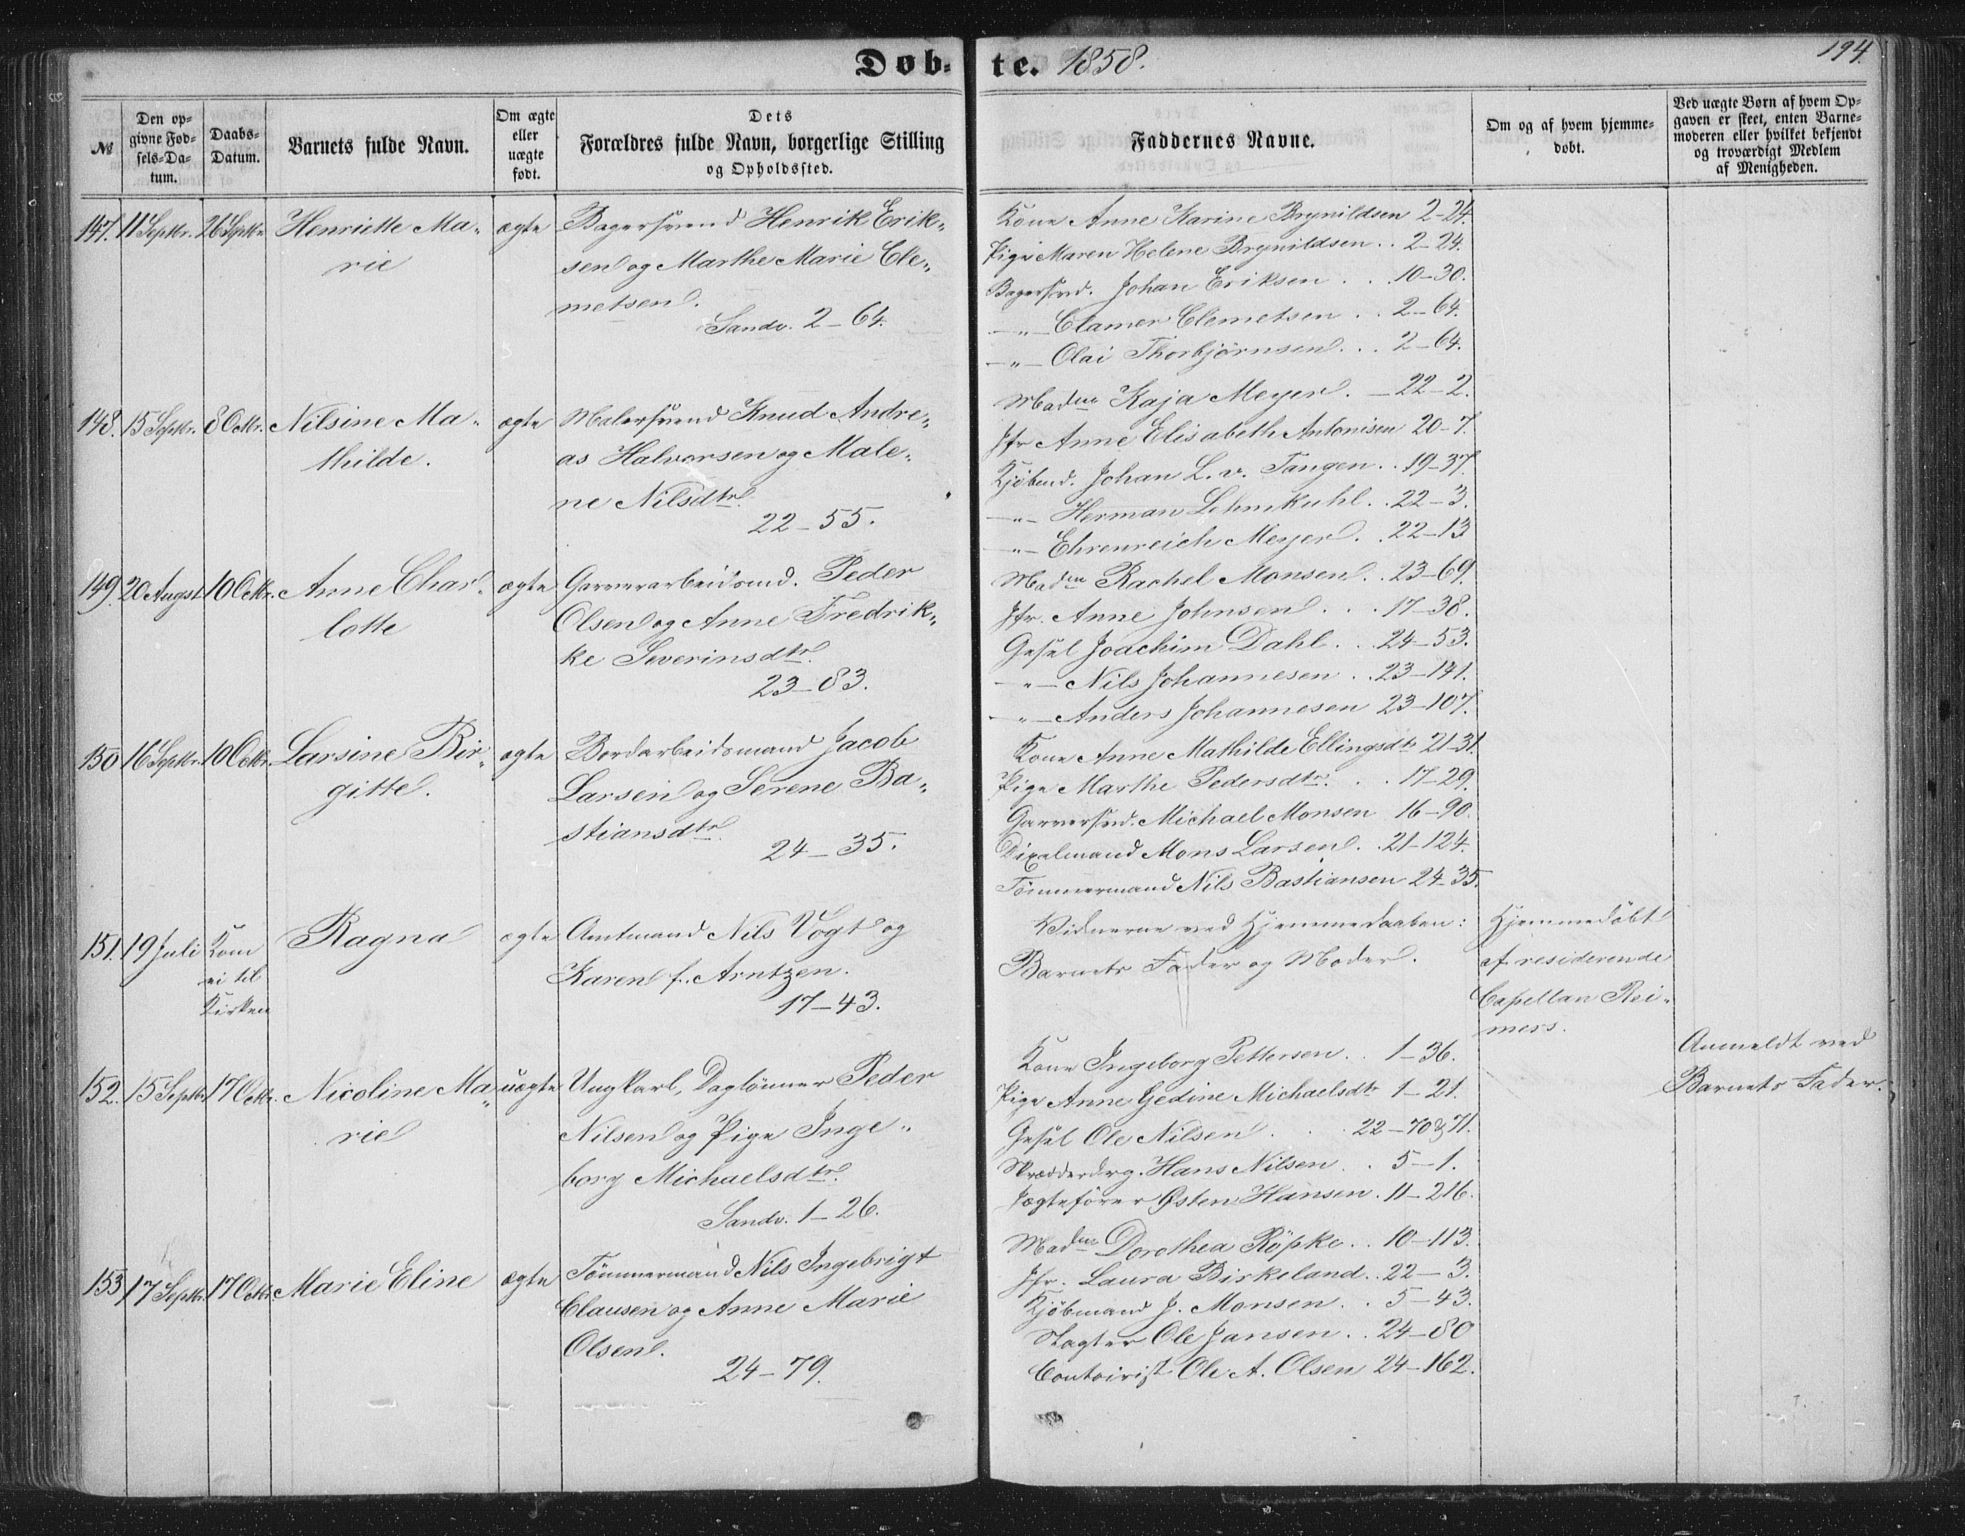 Døb-
te. 1858.
194.
№
Den op-
givne Fød-
sels-Da-
tum.
Daabs-
Datum.
Barnets fulde Navn.
Om ægte
eller
uægte
født.
Dets
Forældres fulde Navn, borgerlige Stilling
og Opholdssted.
Faddernes Navne.
Om og af hvem hjemme-
døbt.
Ved uægte Børn af hvem Op-
gaven er skeet, enten Barne-
moderen eller hvilket bekjendt
og troværdigt Medlem
af Menigheden.
147. 11 Septbr. 26 Septbr. Henriette Ma-
rie
ægte
Bagersvend Henrik Erik-
sen og Marthe Marie Cle-
metsen.
Sandv. 2-64.
Kone Anne Karine Brynildsen 2-24.
Pige Maren Helene Brynildsen .. 2-24.
Bagersvd. Johan Eriksen .. 10-30.
-"- Clamer Clemetsen .. 2-64.
-"- Olai Thorbjørnsen ... 2-64.
148. 15 Septbr. 8 Octbr. Nilsine Ma-
thilde.
ægte
Malersvend Knud Andre-
as Halvorsen og Male-
ne Nilsdtr.
22-55.
Madme Kaja Meyer. - 22-2.
Jfr Anne Elisabeth Antonisen 20-7.
Kjøbmd. Johan L. v. Tangen .. 19-37.
-"- Herman Lehmkuhl .. 22-3.
-"- Ehrenreich Meyer .. 22-13
149. 20 Augst 10 Octbr. Anne Char-
lotte
ægte
Garverarbeidsmd. Peder
Olsen og Anne Fredrik-
ke Severinsdtr.
23-83.
Madme Rachel Monsen .. 23-69.
Jfr. Anne Johnsen ... 17-38.
Gesel Joachim Dahl ... 24-53.
-"- Nils Johannesen .. 23-141.
-"- Anders Johannesen 23-107.
150 16 Septbr. 10 Octbr. Larsine Bir-
gitte.
ægte
Bordarbeidsmand Jacob
Larsen og Serene Ba-
stiansdtr.
24-35.
Kone Anne Mathilde Ellingsdtr 21-31.
Pige Marthe Pedersdtr. .. 17-29.
Garversvd. Michael Monsen 16-90.
Dixelmand Mons Larsen .. 21-124.
Tømmermand Nils Bastiansen 24-35.
151. 19 Juli Kom
ei til
Kirken
Ragna
ægte
Amtmand Nils Vogt og
Karen f. Arntzen.
17-43.
Vidnerne ved Hjemmedaaben:
Barnets Fader og Moder.
Hjemmedøbt
af residerende
Capellan Rei-
mers.
152. 15 Septbr. 17 Octbr. Nicoline Ma-
rie
uægte
Ungkarl, Daglønner Peder
Nilsen og Pige Inge-
borg Michaelsdtr.
Sandv. 1-26.
Kone Ingeborg Pettersen .. 1-36.
Pige Anne Gedine Michaelsdtr 1-21.
Gesel Ole Nilsen .. 22-70 & 71.
Skrædderdrg. Hans Nilsen .. 5-1.
Jægtefører Østen Hansen . 11-216.
Anmeldt ved
Barnets Fader.
153 17 Septbr. 17 Octbr. Marie Eline
ægte
Tømmermand Nils Ingebrigt
Clausen og Anne Marie
Olsen.
24-79.
Madme Dorothea Röpke .. 10-113.
Jfr. Laura Birkeland .. 22-3.
Kjøbmand J. Monsen .. 5-43.
Slagter Ole Jansen .. 24-80
Contoirist Ole A. Olsen 24-162.